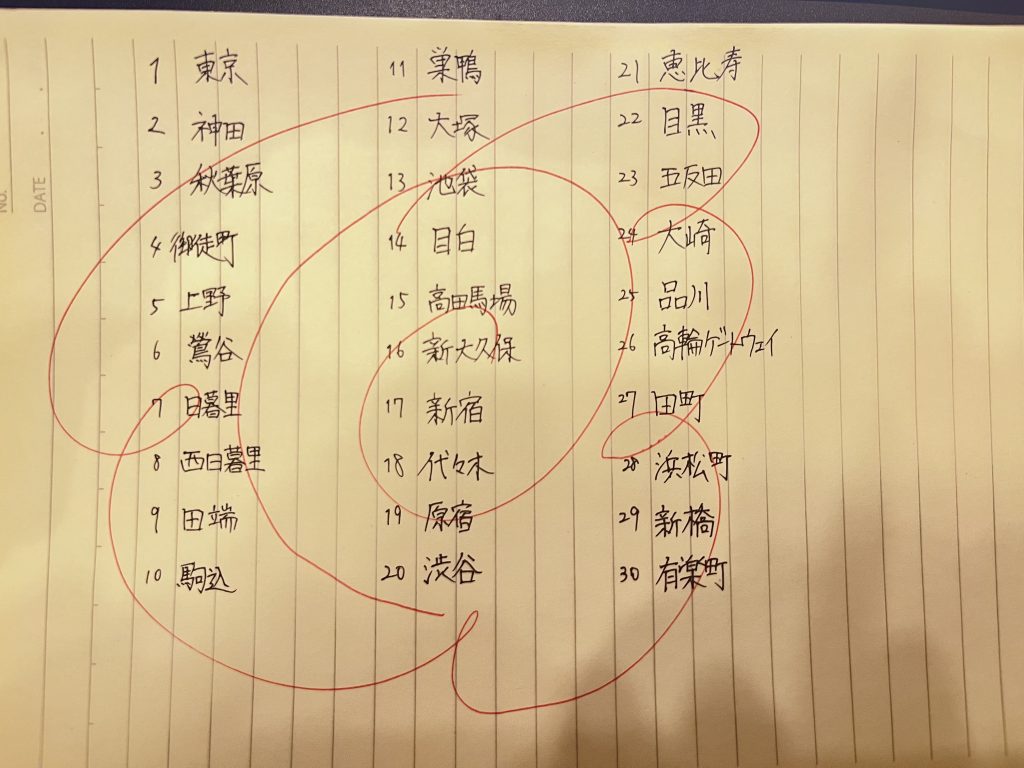 NO.
DATE
1 東京
2 神田
3 秋葉原
4 御徒町
5 上野
6 鶯谷
7 日暮里
8 西日暮里
9 田端
10 駒込
11 巣鴨
12 大塚
13 池袋
14 目白
15 高田馬場
16 新大久保
17 新宿
18 代々木
19 原宿
20 渋谷
21 恵比寿
22 目黒
23 五反田
24 大崎
25 品川
26 高輪ゲートウェイ
27 田町
28 浜松町
29 新橋
30 有楽町